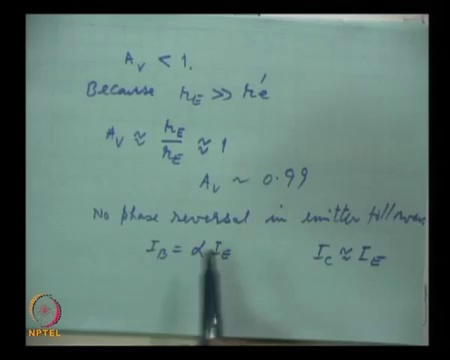 A_V < 1.
Because r_E >> r'e
A_V ≈ r_E / r_E ≈ 1
A_V ~ 0.99
No phase reversal in emitter follower
I_B = α I_E I_C ≈ I_E
NPTEL